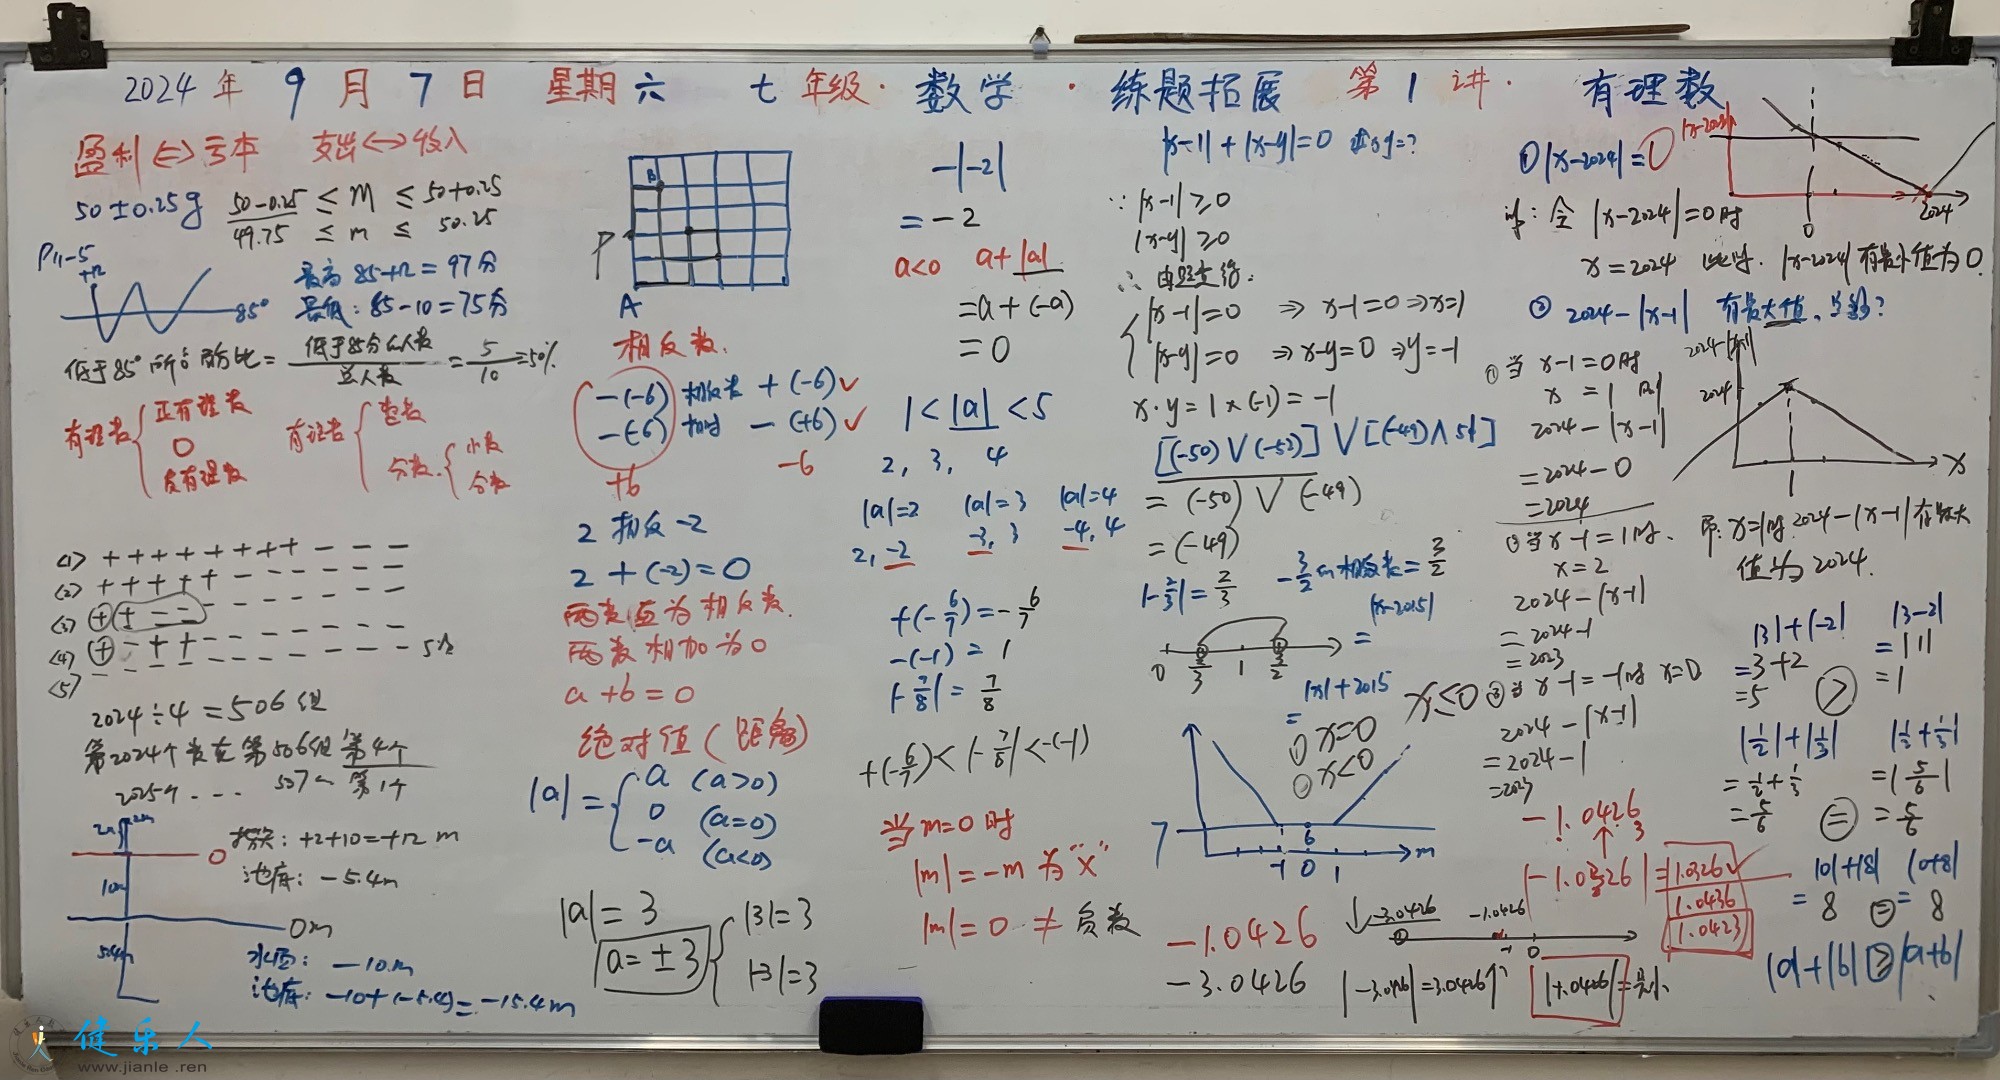 2024年 9月7日 星期六 七年级·数学·练题拓展 第1讲·有理数
盈利⇔亏本 支出↔收入
50±0.25g
50-0.25 ≤ M ≤ 50+0.25
49.75 ≤ m ≤ 50.25
P11-5
+12
85°
最高 85+12=97分
最低:85-10=75分
低于85° 所占百分比= 低于85分的人数 / 总人数 = 5/10 =50%
有理数 { 正有理数
0
负有理数
有理数 { 整数
分数 { 小数
分数
<1> + + + + + + + + - - - -
<2> + + + + + - - - - - -
<3>
<4>
<5>
5个
2024÷4=506组
第2024个数在第506组第4个
2025个 ... 507 第1个
2m
0
10m
5.4m
0m
扶梯:+2+10=+12 m
池底:-5.4m
水面:-10m
池底:-10+(-5.4)=-15.4m
B
P
A
相反数.
-(-6) 相反数 +(-6)✓
-(-6) 相同 -(+6)✓
+6
-6
2 相反 -2
2+(-2)=0
两数互为相反数.
两数相加为0
a+b=0
绝对值(距离)
|a|= { a (a>0)
0 (a=0)
-a (a<0)
|a|=3
a=±3 { |3|=3
|-3|=3
-|-2|
=-2
a<0 a+|a|
=a+(-a)
=0
1<|a|<5
2, 3, 4
|a|=2 |a|=3 |a|=4
2,-2 -3,3 -4,4
+(-6/7)=-6/7
-(-1)=1
|-7/8|=7/8
+(-6/7)<|-7/8|<-(-1)
当m=0时
|m|=-m为“x”
|m|=0≠负数
|x-1|+|x-y|=0 求xy=?
∵|x-1|≥0
|x-y|≥0
∴由题意得:
{ |x-1|=0 ⇒x-1=0⇒x=1
|x-y|=0 ⇒x-y=0⇒y=-1
x·y=1×(-1)=-1
[(-50)∨(-52)]∨[(-49)∧51]
=(-50)∨(-49)
=(-49)
|-2/3|=2/3 -3/2的相反数=3/2
0 2/3 1 3/2
|x-2015|
=
|x|+2015
=
x≤0
① x=0
② x<0
7
6
-1 0 1 m
-1.0426
-3.0426
-3.0426 -1.0426
-1 0
|-3.0426|=3.0426
|-1.0426|=最小
①|x-2024|=0
|x-2024|
0 2024
解:令|x-2024|=0时
x=2024 此时.|x-2024|有最小值为0.
② 2024-|x-1| 有最大值,
①当 x-1=0时
x=1时
2024-|x-1|
=2024-0
=2024
②当x-1=1时.
x=2
2024-|x-1|
=2024-1
=2023
③当x-1=-1时 x=0
2024-|x-1|
=2024-1
=2023
2024-|x-1|
2024
1
x
即:x=1时.2024-|x-1|有最大
值为2024.
|3|+|-2| |3-2|
=3+2 =|1|
=5 > =1
|1/2|+|1/3| |1/2+1/3|
=1/2+1/3 =|5/6|
=5/6 = =5/6
|0|+|8| |0+8|
=8 = =8
|a|+|b|≥|a+b|
-1.0426
3
|-1.0326|=1.0326✓
1.0436
1.0423
健乐人
www.jianle.ren